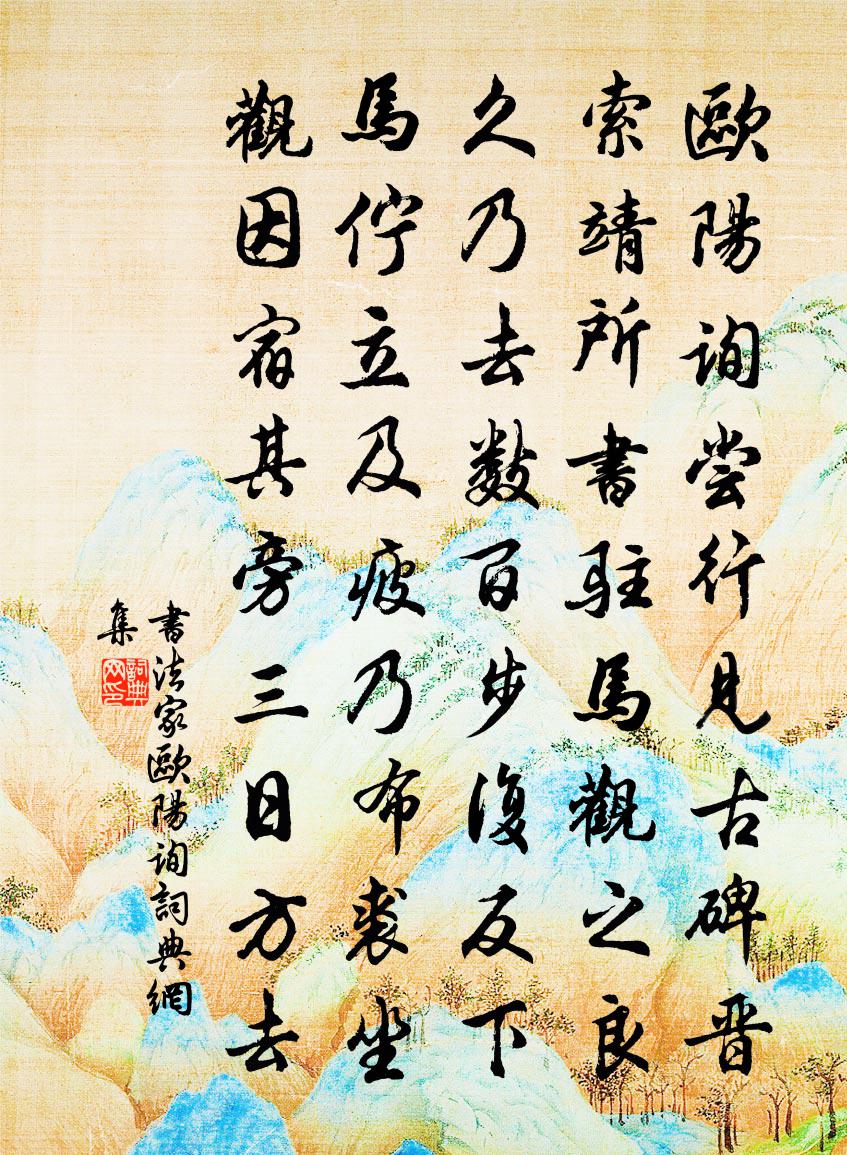 歐陽詢嘗行見古碑晉
索靖所書駐馬觀之良
久乃去數百步復反下
馬佇立及疲乃布裘坐
觀因宿其旁三日方去
書法家歐陽詢詞典網
集
詞典
网印